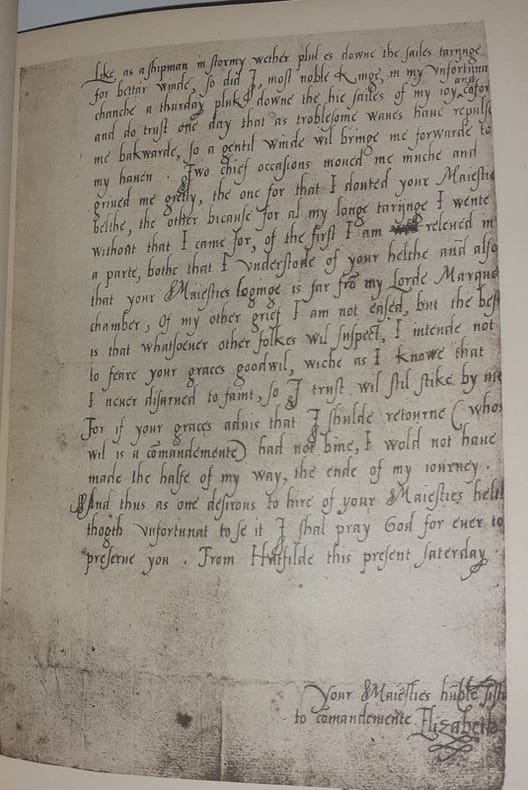 Like as a shipman in stormy wether plukes downe the sailes tarijnge
for bettar winde, so did I, most noble Kinge, in my vnfortuna
chanche a thurday pluk downe the hie sailes of my ioy and cofor
and do trust one day that as troblesome waues haue repulse
me bakwarde, so a gentil winde wil bringe me forwarde to
my hauen. Two chief occasions moued me muche and
griued me gretly, the one for that I douted your Maiestie
helthe, the other bicause for al my longe tarijnge I wente
without that I came for, of the first I am releued in
a parte, bothe that I vnderstode of your helthe and also
that your Maiesties loginge is far frō my Lorde Marque
chamber, Of my other grief I am not eased, but the best
is that whatsoeuer other folkes wil suspect, I intende not
to feare your graces goodwil, wiche as I knowe that
I neuer disarued to faint, so I trust wil stil stike by me
For if your graces aduis that I shulde retourne (whos
wil is a comandemente) had not bine, I wold not haue
made the halfe of my way, the ende of my iourney.
And thus as one desirous to hire of your Maiesties helt
thogth vnfortunat to se it I shal pray God for euer to
preserue you. From Hatfilde this present saterday
your Maiesties hūble sist
to comandemente Elizabeth